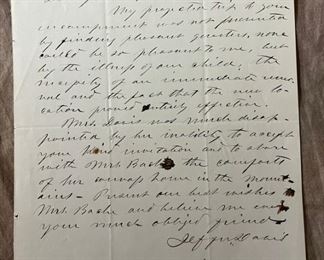 My projected trip to your
encampment was not prevented
by finding pleasant quarters, none
could be so pleasant to me, but
by the illness of our child, the
necessity of an immediate remo-
val and the fact that the new lo-
cation proved entirely effective.
Mrs. Davis was much disap-
pointed by her inability to accept
your kind invitation and to share
with Mrs. Bache the comforts
of her canvass home in the Mount-
ains. Present our best wishes
Mrs. Bache and believe me ever
your much obliged friend
Jeffn. Davis